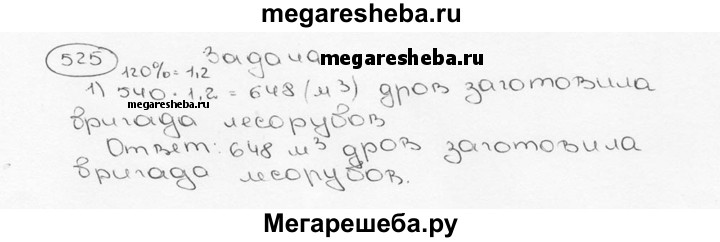 megaresheba.ru
525 Задача
megaresheba.ru
120% = 1,2
1) 540 · 1,2 = 648 (м³) дров заготовила
megaresheba.ru
бригада лесорубов
Ответ: 648 м³ дров заготовила
бригада лесорубов.
Мегарешеба.ру